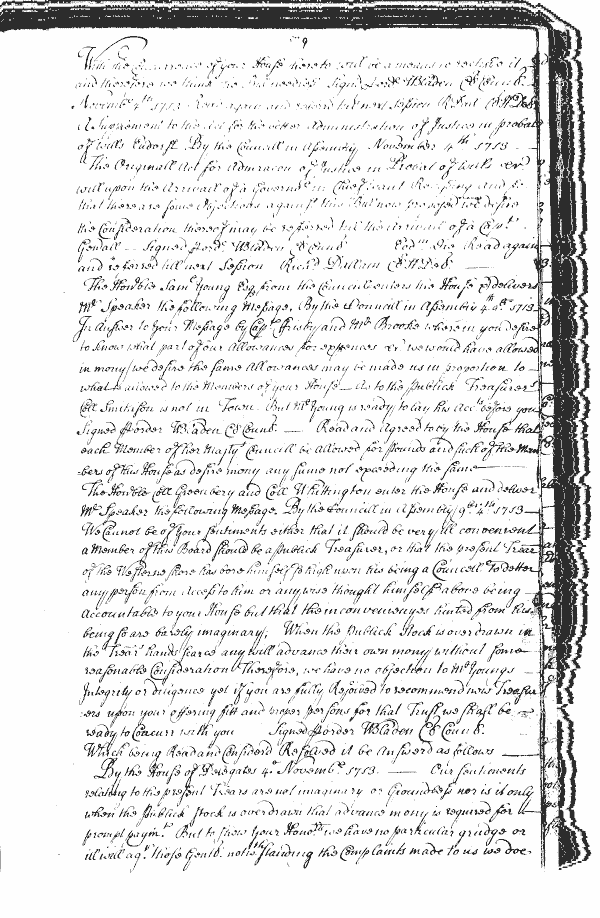 9
With the Concurrence of your House hereto will be a means to rectifie it
and therefore we think no Bill needful Signd p ord.r WBladen Cl Counc.
November 4th 1713 Read again and referrd till next Session R Dul. Cl H. Del.
A Supplement to the Act for the better Administration of Justice in probate
of Wills Endorsd. By the Councill in Assembly November 4th 1713
The Originall Act for Admracon of Justice in Probat of Wills &c.
will upon the Arrivall of a Governr. in Chief want
that there are some Objections against this But now we desire
the Consideration thereof may be referred till the Arrivall of a Capt.
Genall — Signed p ord.r WBladen Cl Counc. Read again
and referred till next Session Richd. Dulany Cl H. Del.
The Honble Saml. Young Esq. from the Council enters the House & delivers
Mr. Speaker the following Message, By the Councill in Assembly 4 9br. 1713
In Answer to your Message by Capt. and Mr. Brooke wherein you desire
to know what part of our Allowances for expences &c. we would have allowed
in mony/ we desire the same Allowances may be made us in proportion to
what is allowed to the Members of your House — As to the Publick Treasurer
Coll Smithson is not in Town. But Mr. Young is ready to lay his Accts. before you
Signed p order WBladen Cl Counc. — Read and Agreed to by the House that
each Member of her Majtys. Councill be Allowed four pounds and such of the Mem
bers of this House as desire mony any sume not exceeding the same —
The Honble Coll Greenbery and Coll Whittington enter the House and deliver
Mr. Speaker the following Message. By the Councill in Assembly 9br. 4th 1713 —
We Cannot be of your Sentiments either that it should be very ill convenient
a Member of this Board should be a Publick Treasurer, or that the present Trear
of the Westerne shore has bore himself so high upon his being a Councellr. To detter
any person from access to him or anywise thought himself above being
Accountable to your House but that the inconveniencyes hinted from his
being so are barely imaginary, When the Publick Stock is overdrawn in
the Trears hands scarce any will advance their own mony without some
reasonable Consideration Therefore, we have no objection to Mr. Youngs
Integrity or diligence yet if you are fully Resolved to recommend new Treasur
ers upon your offering fitt and proper persons for that Trust we shall be
ready to Concurr with you Signed p order WBladen Cl Counc.
Which being Read and Considerd Resolved it be Answerd as follows —
By the House of Delegates 4th Novembr. 1713. — Our Sentiments
relating to the present Trears are not imaginary or Groundless nor is it only
when the Publick Stock is overdrawn that advance mony is required for
prompt paymt. But to shew your Honrs. we have no particular grudge or
ill will agt. those Gentl. notwthstanding the Complaints made to us we doe